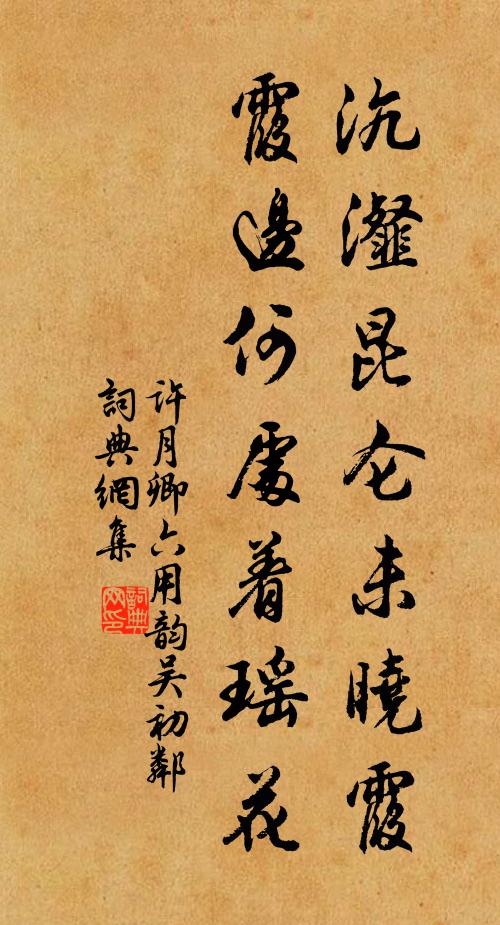 沆瀣昆仑未曉霞
霞邊何處着瑶花
許月卿六用韵吴初鄰
詞典網集
詞典网印